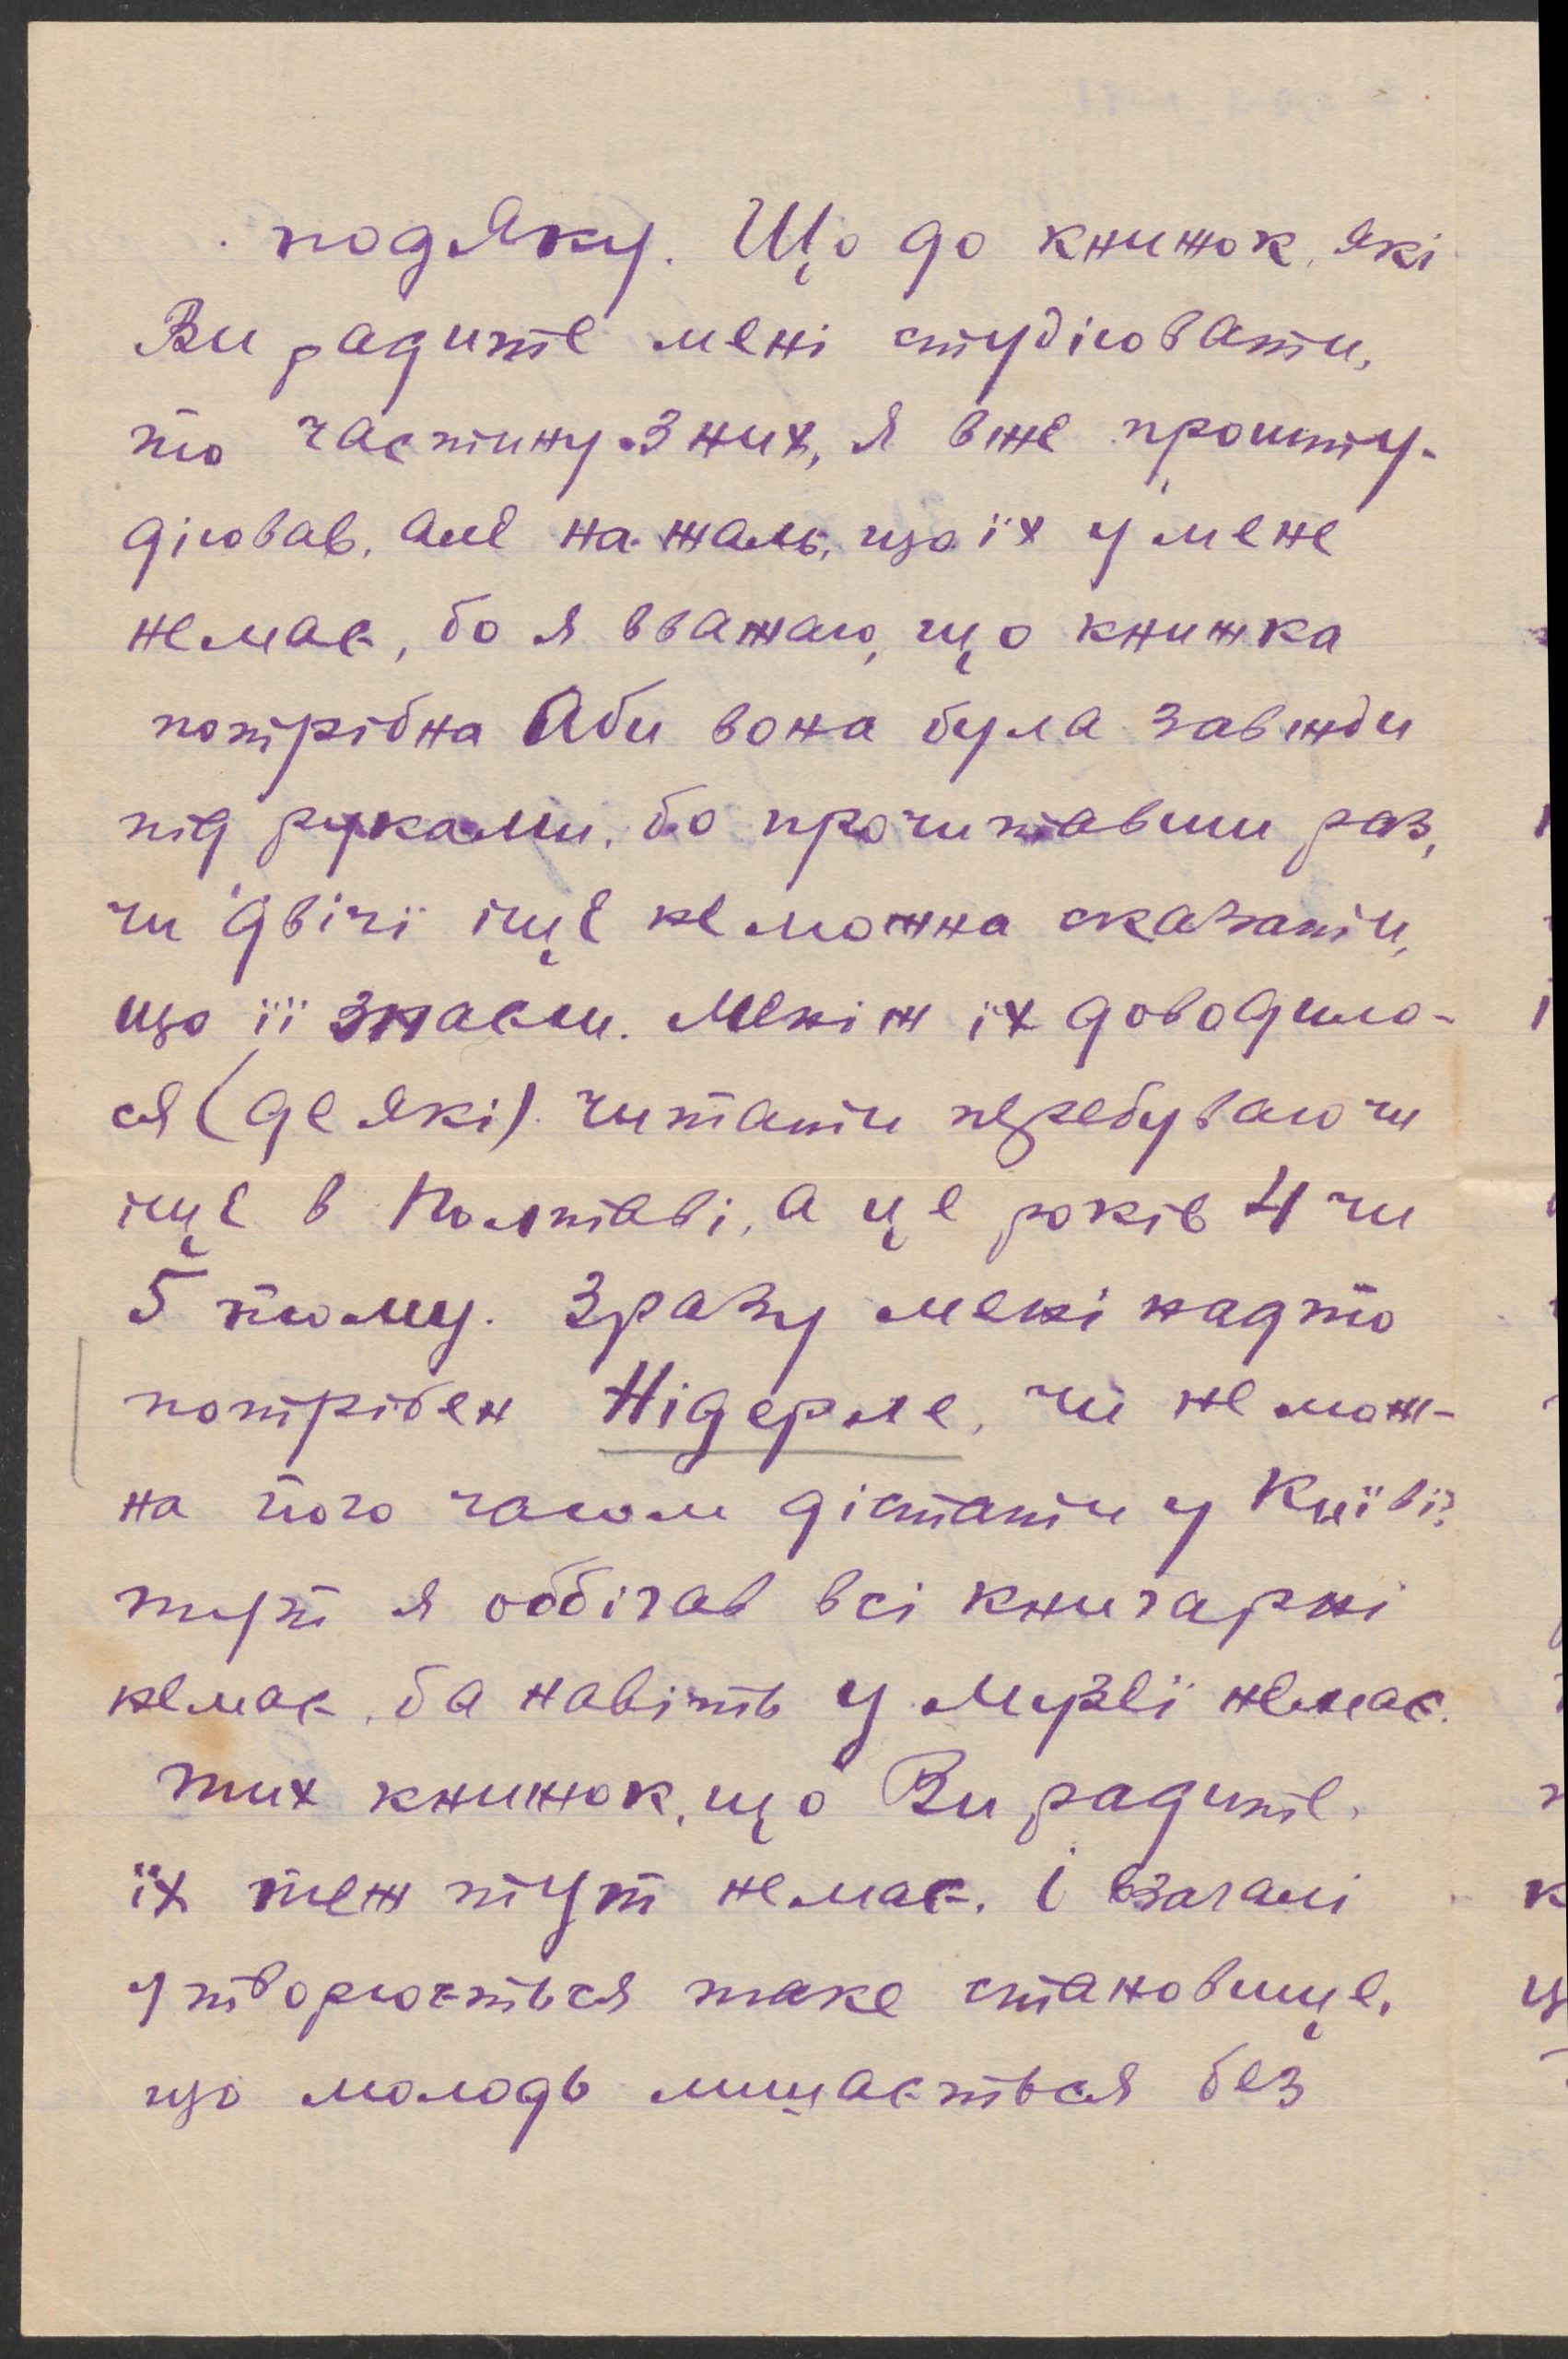 подяку. Що до книжок, які
Ви радите мені студіювати,
то частину з них, я вже прошту-
діював, але на жаль, що їх у мене
немає, бо я вважаю, що книжка
потрібна Аби вона була завжди
під руками, бо прочитавши раз,
чи двічі іще не можна сказати,
що її знаєш. Мені ж їх доводило-
ся (де які) читати перебуваючи
іще в Полтаві, а це років 4 чи
5 тому. Зразу мені надто
потрібен Нідерле, чи не мож-
на його часом дістати у Київі?
тут я оббігав всі книгарні
немає, ба навіть у Музеї немає.
Тих книжок, що Ви радите,
їх теж тут немає. І взагалі
утворюється таке становище,
що молодь лишається без